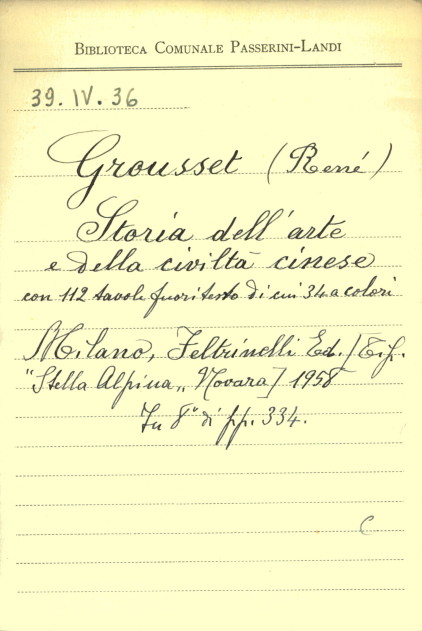 BIBLIOTECA COMUNALE PASSERINI-LANDI
39. IV. 36
Grousset (René)
Storia dell'arte
e della civiltà cinese
con 112 tavole fuori testo di cui 34 a colori
Milano, Feltrinelli Ed. [Tip.
"Stella Alpina„ Novara] 1958
In 8° di pp. 334.
C